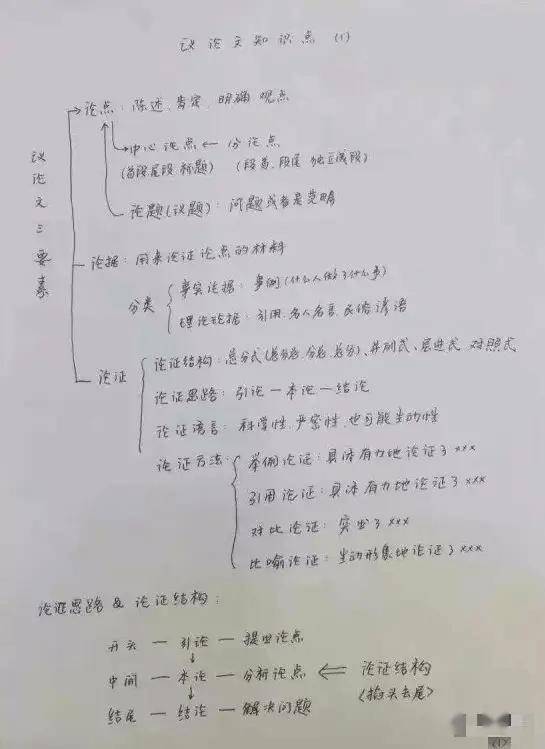 议论文知识点 (1)
议论文三要素
论点：陈述、肯定、明确 观点
中心论点 ← 分论点
(首段尾段、标题) (段首、段尾 独立成段)
论题(议题)：问题或者是范畴
论据：用来论证论点的材料
分类
事实论据：事例(什么人做了什么事)
理论论据：引用、名人名言、民俗谚语
论证
论证结构：总分式(总分总、分总、总分)、并列式、层进式 对照式
论证思路：引论—本论—结论
论证语言：科学性、严密性、也可能生动性
论证方法：
举例论证：具体有力地论证了xxx
引用论证：具体有力地论证了xxx
对比论证：突出了xxx
比喻论证：生动形象地论证了xxx
论证思路 & 论证结构：
开头 — 引论 — 提出论点
↓
中间 — 本论 — 分析论点 ⇐ 论证结构
↓ (掐头去尾)
结尾 — 结论 — 解决问题
(1)